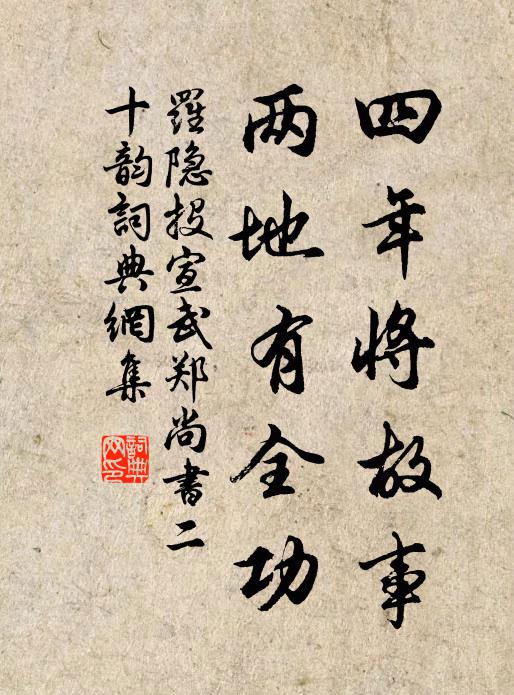 四年将故事
两地有全功
羅隐投宣武郑尚書二
十韵詞典網集
詞典网印